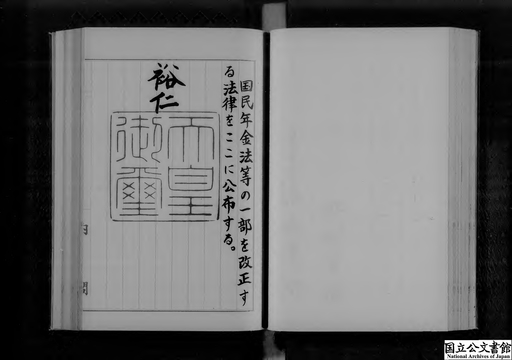 国民年金法等の一部を改正す
る法律をここに公布する。
裕仁
天皇
御璽
内閣
国立公文書館
National Archives of Japan